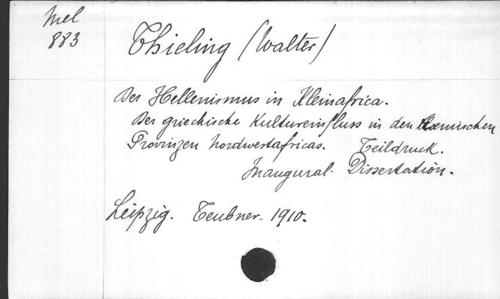 Mel
883
Thieling (Walter)
Der Hellenismus in Kleinafrica.
Der griechische Kultureinfluss in den Rœmischen
Provinzen Nordwestafricas. Teildruck.
Inaugural. Dissertation.
Leipzig. Teubner. 1910.